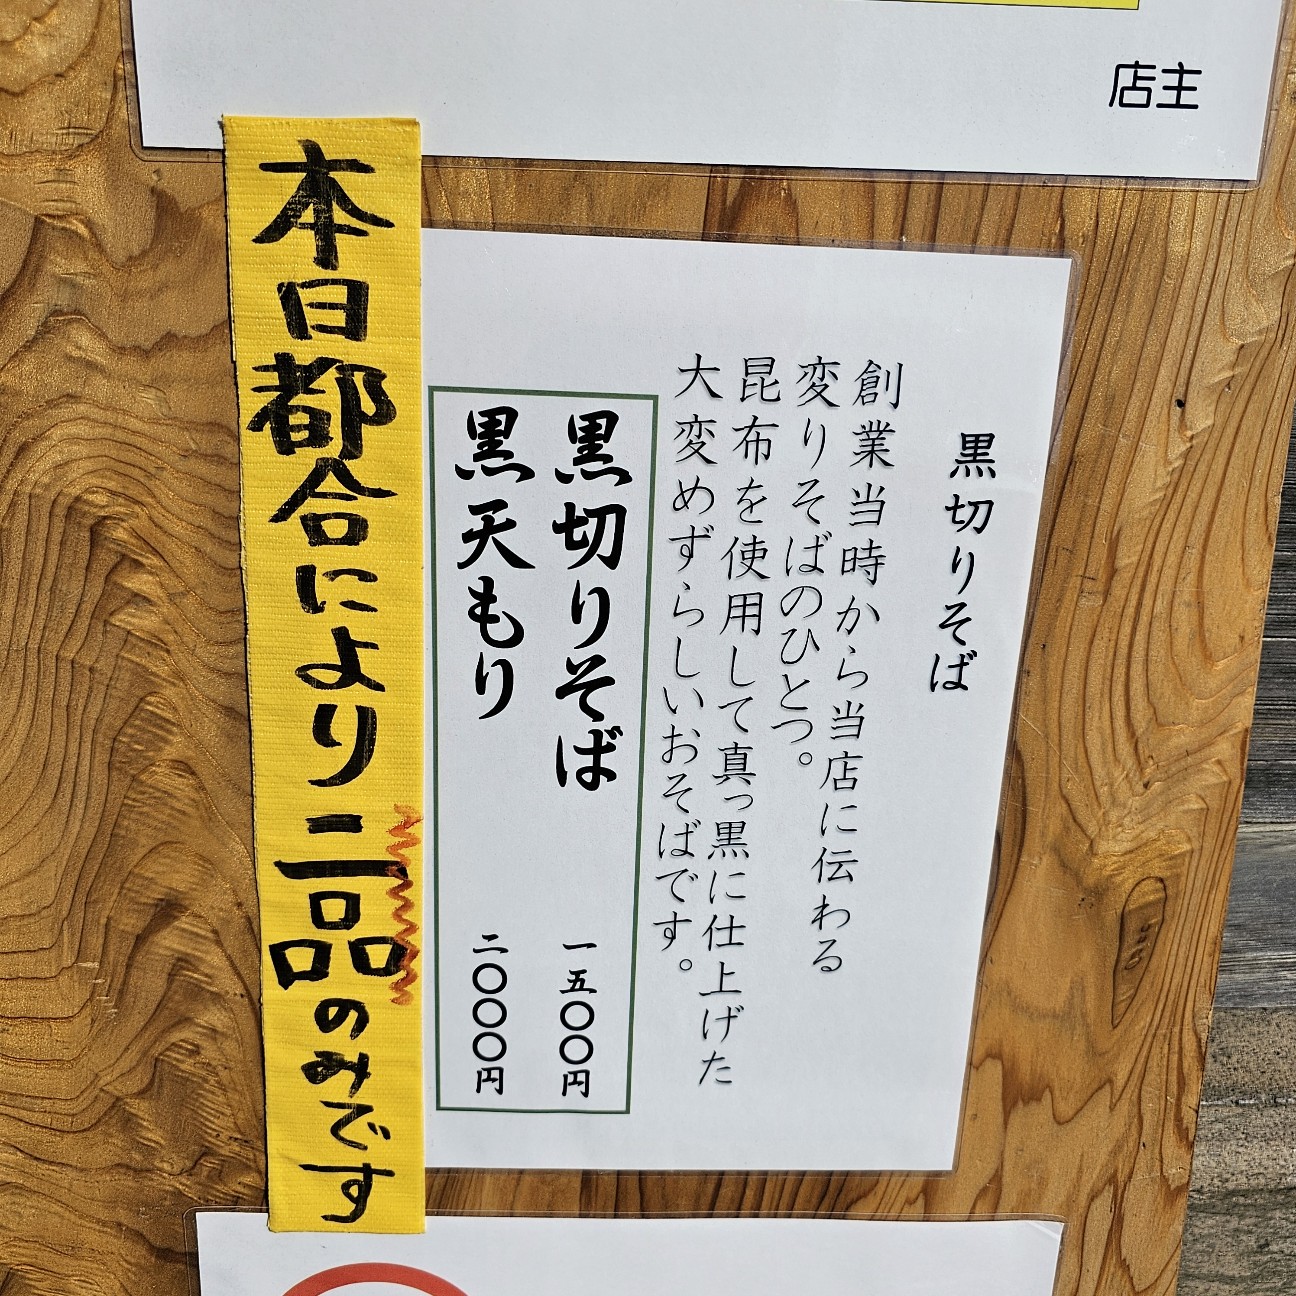 店主
黒切りそば
創業当時から当店に伝わる
変りそばのひとつ。
昆布を使用して真っ黒に仕上げた
大変めずらしいおそばです。
黒切りそば 一五〇〇円
黒天もり 二〇〇〇円
本日都合により二品のみです